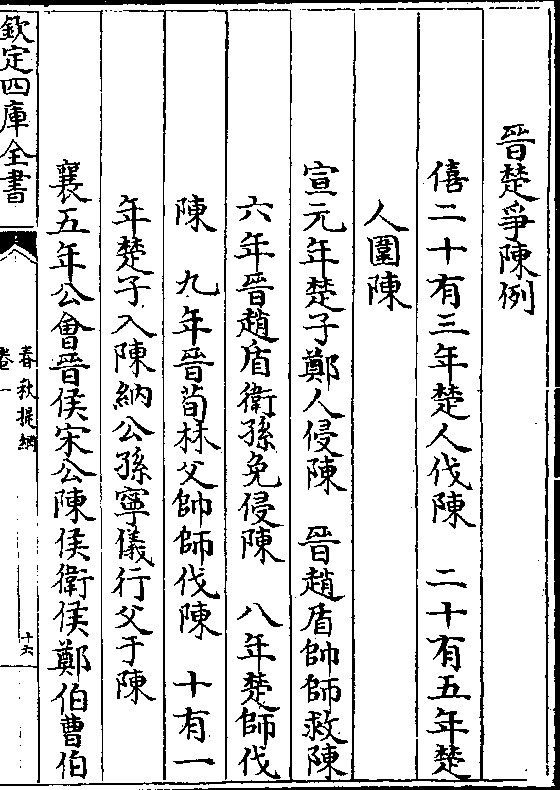 晉楚爭陳例
僖二十有三年楚人伐陳　二十有五年楚
人圍陳
宣元年楚子鄭人侵陳　晉趙盾帥師救陳
六年晉趙盾衛孫免侵陳　八年楚師伐
陳　九年晉荀林父帥師伐陳　十有一
年楚子入陳納公孫寧儀行父于陳
襄五年公會晉侯宋公陳侯衛侯鄭伯曹伯
欽定四庫全書
春秋提綱
卷一
十六